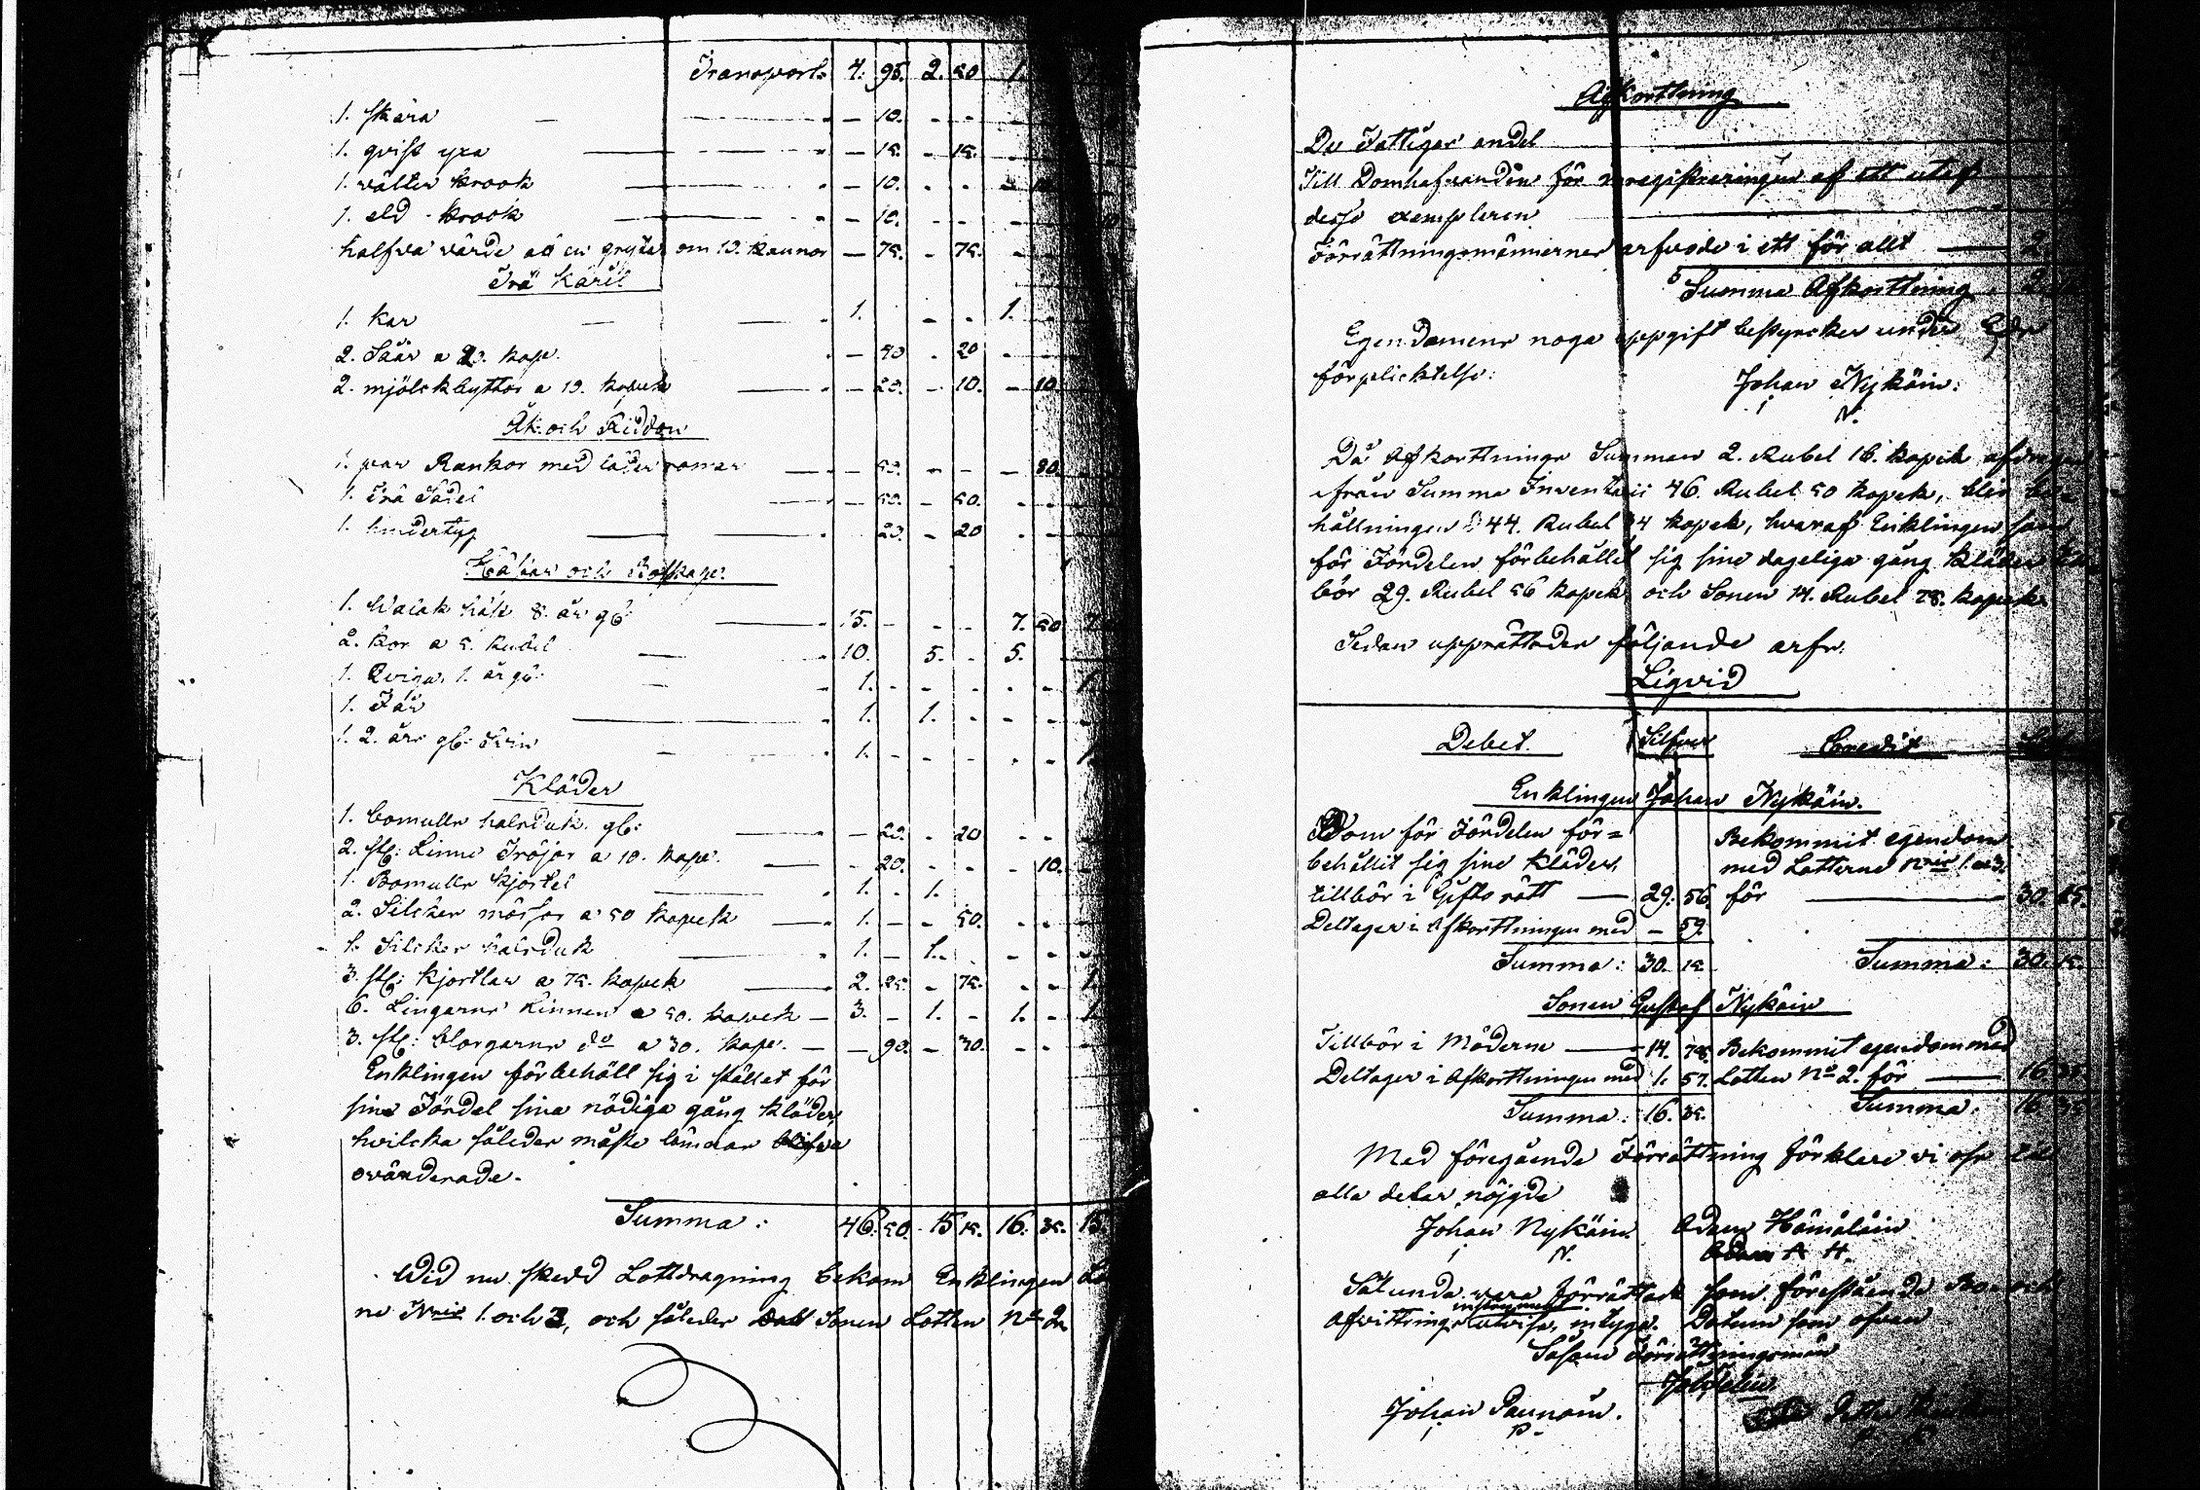 Transport. 4. 95. 2. 50. 1.
1. skära — 10. - - -
1. qvist yxa — 15. - 15. -
1. wälter krook — 10. - - -
1. eld-krook — 10. - - -
halfva värde af en gryta om 13. kannor — 75. - 75. - -
Trä Käril
1. kar 1. - - 1. -
2. Såår a 20. kop. — 40 - 20 - -
2. mjölckbyttor a 10. kopek — 20. - 10. - 10.
Åk- och Riddon
1. par Rankor med läder — 50. - - - 50.
1. Trä Sadel — 50. - 50. - -
1. 20. - 20 - -
och Boskap.
1. Walak häst 8. år gl: 15. - - - 7. 50
2. kor a 5. Rubel 10. 5. - 5.
1. Qviga, 1. år gl: 1. - - - - 1
1. Får 1. 1. - - - -
1. 2. års gl: 1. - - - - 1
Kläder
1. bomulls halsduk gl: — 20. - 20 - -
2. st: Linne Tröjor a 10. kop. — 20. - - - 10.
1. Bomulls kjortel 1. - 1.
2. Silcker mössor a 50 kopek — 1. - - 50. - -
1. Silcker halsduk 1. - 1. - - -
3. st: kjortlar a 75. kopek 2. 25. - 75. - - 1.
6. Lingarns Linnen a 50. kopek — 3. - 1. - 1. - 1.
3. st: blorgarns do a 30. kop. — — 90. - 30. - -
Enklingen förbehöll sig i stället för
sine Fördel sina nödiga gång kläder,
hvilcka således måste lämnas blifva
ovärderade.
Summa: 46. 50. 15 15. 16. 35. 15.
Wid nu skedd Lottdragning bekom Enklingen
ne Nris 1. och 3, och således Sonen Lotten No 2.
Afkorttning
De Fattigas andel
Till Domhafvanden för inregistreringen af ett utaf
desse exemplaren
Förrättningsmännernes arfvode i ett för allt — 2
Summa Afkorttning. 2.
Egendomens noga uppgift bestyrckes under Eds
förplicktelse: Johan Nykäin:
N.
Då Afkorttnings Summan 2. Rubel 16. kopek afdrages
ifrån Summa Inventarii 46. Rubel 50 kopek, blir be-
hållningen 44. Rubel 34 kopek, hvaraf Enklingen som
för Fördelen förbehållit sig sine dageliga gång kläder
bör 29. Rubel 56 kopek och Sonen 14. Rubel 78. kopek.
Sedan upprättades följande arfs.
Liqvid
Debet. Silfver Credit
Enklingen Johan Nykäin.
Som för Fördelen för-
behållit sig sine kläder,
tillbör i Gifto rätt — 29. 56
Deltager i Afkorttningen med — 59.
Summa: 30. 15.
Bekommit egendom
med Lotterne Nris 1. o 3.
för — 30. 15.
Summa: 30. 15.
Sonen Gustaf Nykäin
Tillbör i Möderne — 14. 78. Bekommit egendom med
Deltager i Afkorttningen med 1. 57. Lotten No 2. för — 16
Summa: 16. 35. Summa. 16 35
Med föregående Förrättning förklare vi oss till
alla delar nöjgda
Johan Nykäin. Adam Hämäläin
N. A H.
Sålunda vara förrättadt som förestående Bo- och
Afvittrings instrument utvisa, intyga. Datum som ofvan
Såsom Förrättningsmän
Johan Paunoin.
P.